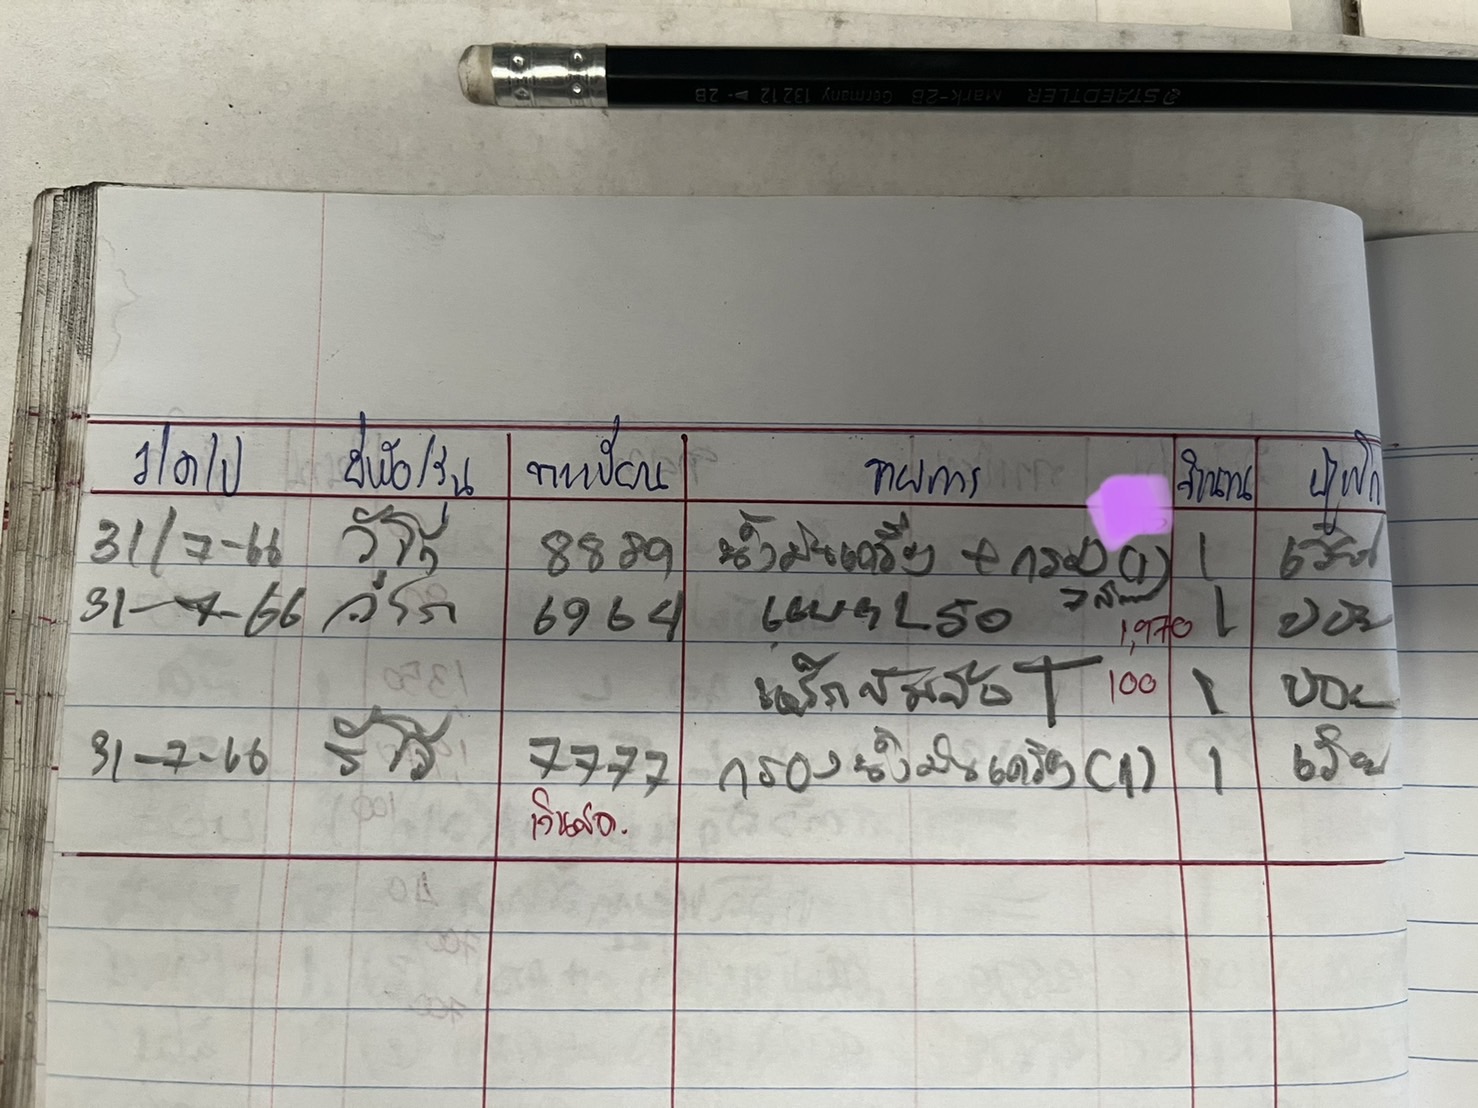 STAEDTLER Mark-2B Germany 132 12 2B
ว/ด/ป ยี่ห้อ/รุ่น ทะเบียน รายการ จำนวน ผู้เบิก
31/7-66 วีโก้ 8889 น้ำมันเครื่อง + กรอง (1) 1
7 ลิตร
31-7-66 6964 แบต L 50 1,970 1
ขั้ว T 100 1
31-7-66 7777 กรองน้ำมันเครื่อง (1) 1
เงินสด.